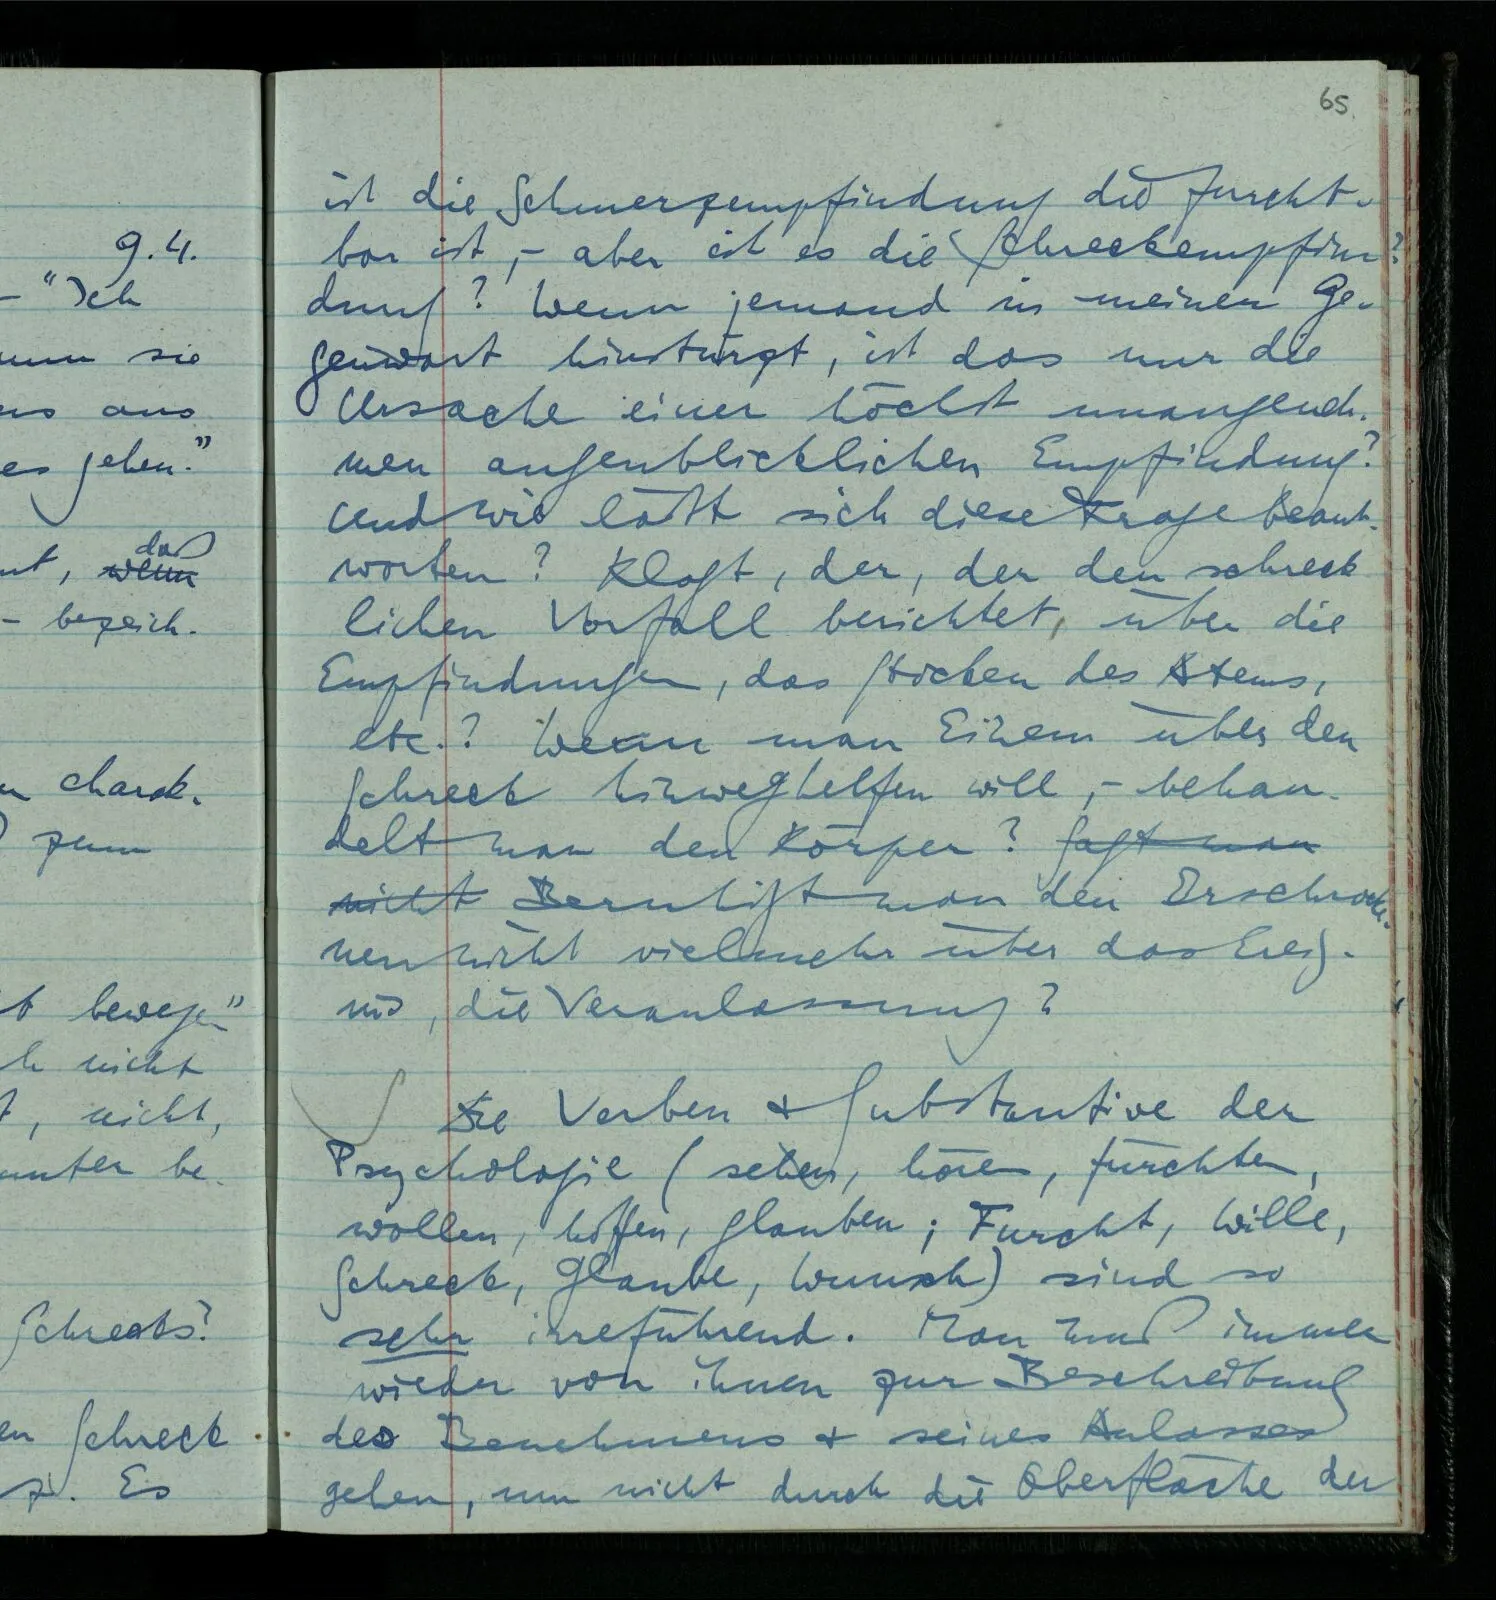 9.4.
– "Ich
sie
aus
es gehen."
daß
, wenn
– bezeich-
charak-
zum
bewegen"
nicht
, nicht,
unter be-
Schrecks?
en Schreck
Es
65
ist die Schmerzempfindung die furcht-
bar ist, – aber ist es die Schreckempfin-?
dung? Wenn jemand in meiner Ge-
genwart hinstürzt, ist das nur die
Ursache einer höchst unangeneh-
men augenblicklichen Empfindung?
Und wie läßt sich diese Frage beant-
worten? Klagt, der, der den schreck
lichen Vorfall berichtet, über die
Empfindungen, das Stocken des Atems,
etc.? Wenn man Einem über den
Schreck hinweghelfen will, – behan-
delt man den Körper? Sagt man
nicht Beruhigt man den Erschrocke-
nen nicht vielmehr über das Ereig-
nis, die Veranlassung?
Die Verben & Substantive der
Psychologie (sehen, hören, fürchten,
wollen, hoffen, glauben; Furcht, Wille,
Schreck, Glaube, Wunsch) sind so
sehr irreführend. Man muß immer
wieder von ihnen zur Beschreibung
des Benehmens & seines Anlasses
gehen, um nicht durch die Oberfläche der